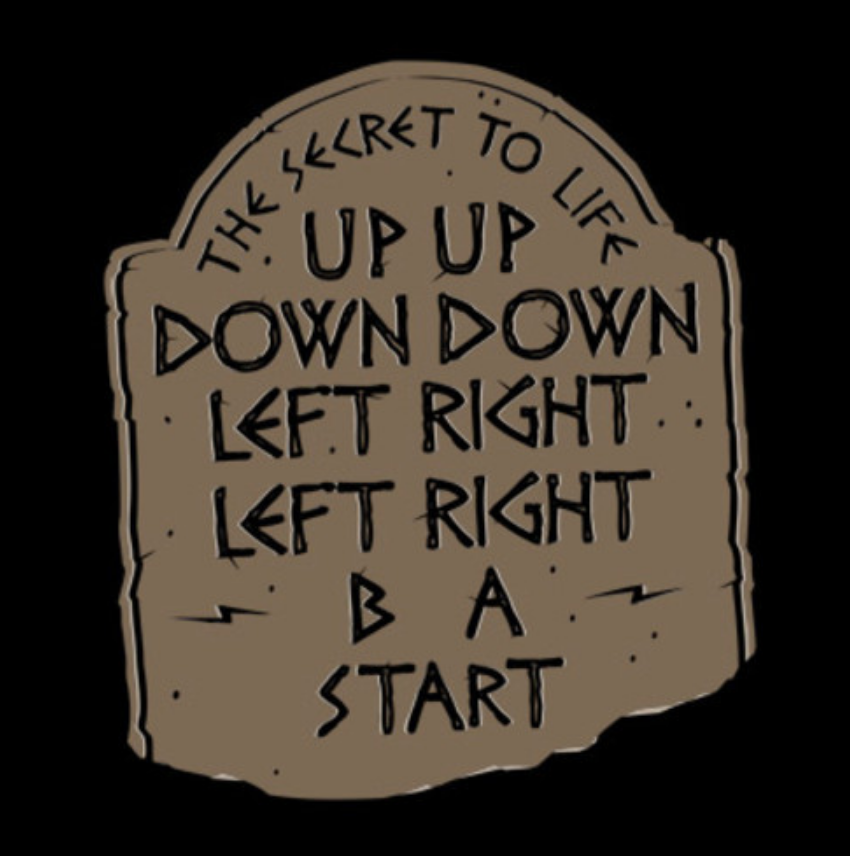 THE SECRET TO LIFE
UP UP
DOWN DOWN
LEFT RIGHT
LEFT RIGHT
B A
START